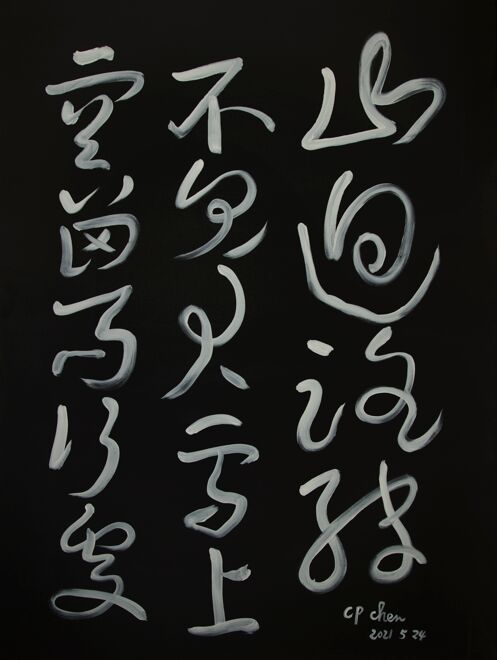 山迴路轉
不見君雪上
空留馬行處
CP Chen
2021 5 24